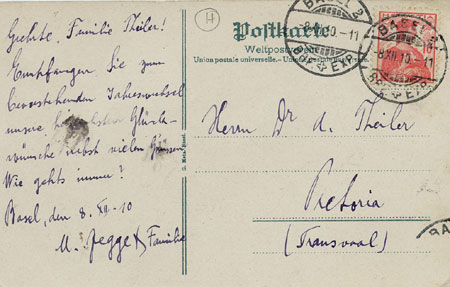 Geehrte Familie Theiler!
Empfangen Sie zum
bevorstehenden Jahreswechsel
unsre herzlichsten Glück-
wünsche nebst vielen Grüssen.
Wie gehts immer?
Basel, den 8. XII - 10
M. Jegge & Familie
H
Postkarte
Weltpostverein
Union postale universelle.
BASEL 2
8.XII.10.-11
BRF. EXP.
BASEL 2
8.XII.10.-11
BRF. EXP.
Herrn Dr A. Theiler
Pretoria
(Transvaal)